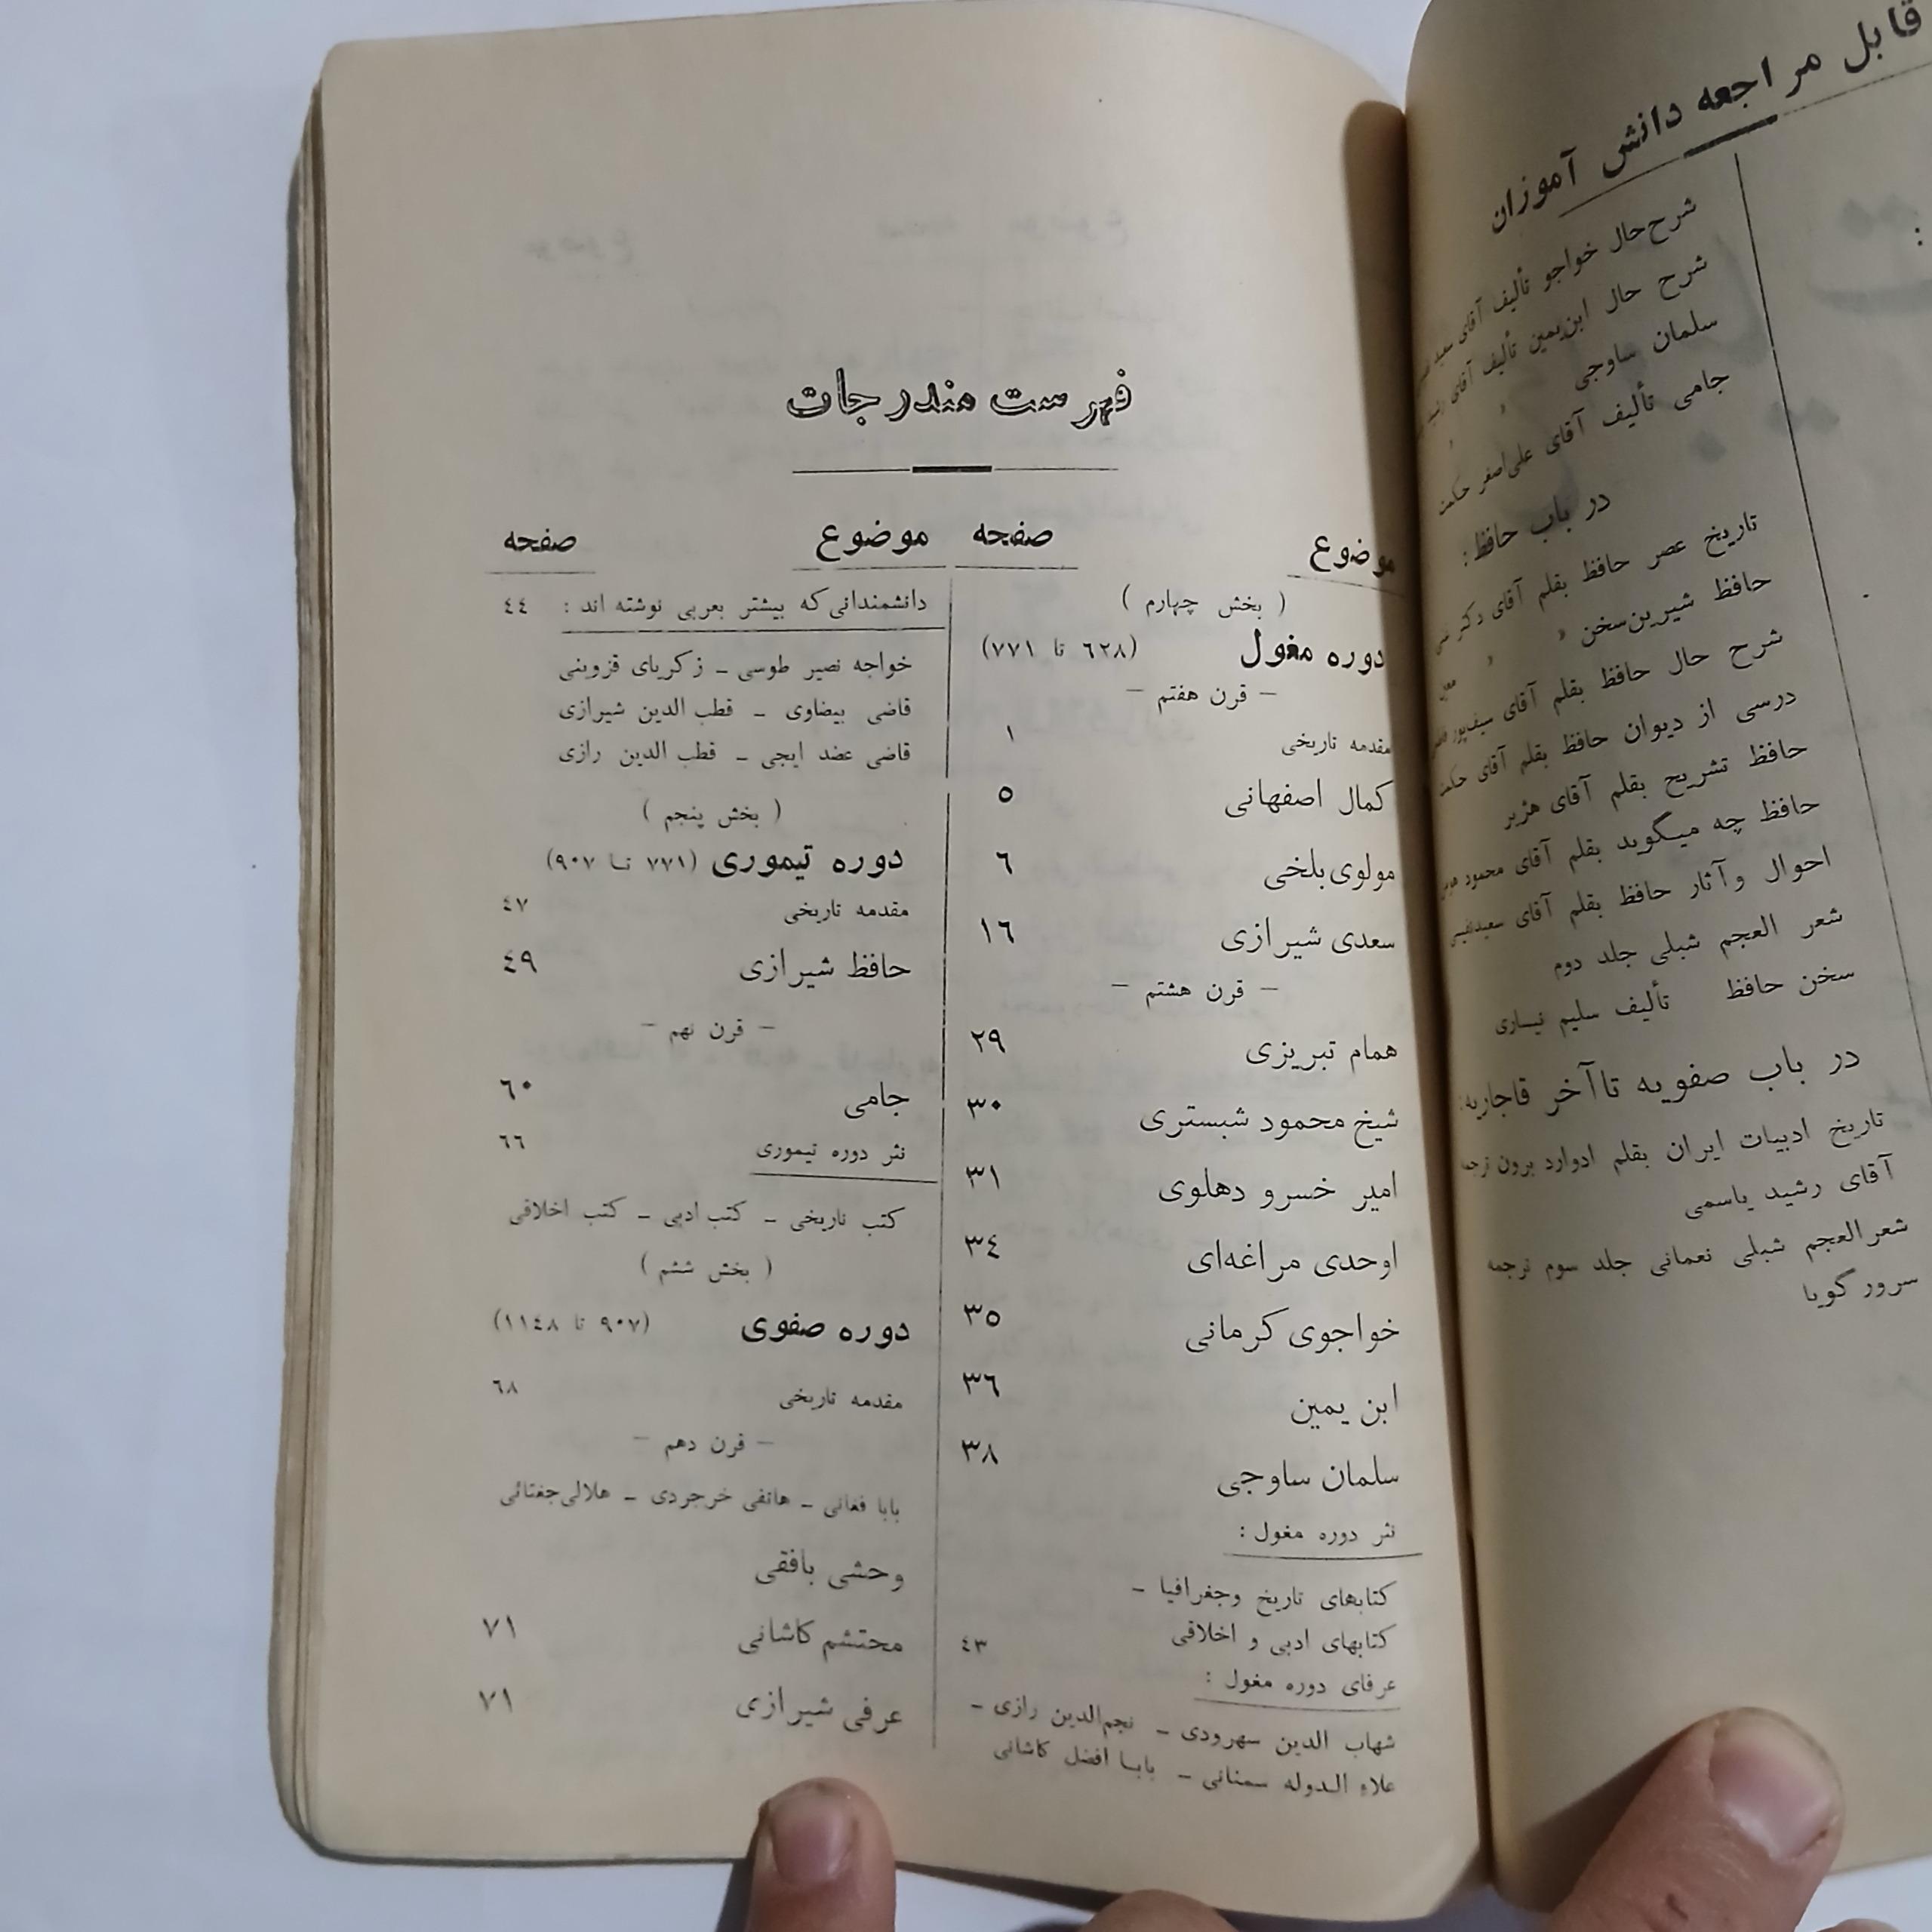 قابل مراجعه دانش آموزان
شرح‌حال خواجو تألیف آقای سعید
شرح حال ابن‌یمین تألیف آقای رشید
سلمان ساوجی » »
جامی تألیف آقای علی‌اصغر حکمت
در باب حافظ :
تاریخ عصر حافظ بقلم آقای دکتر غنی
حافظ شیرین‌سخن » »
شرح حال حافظ بقلم آقای سیف‌پور
درسی از دیوان حافظ بقلم آقای حکمت
حافظ تشریح بقلم آقای هژبر
حافظ چه میگوید بقلم آقای محمود
احوال وآثار حافظ بقلم آقای سعیدنفیسی
شعر العجم شبلی جلد دوم
سخن حافظ تألیف سلیم نیساری
در باب صفویه تاآخر قاجاریه:
تاریخ ادبیات ایران بقلم ادوارد برون ترجمه
آقای رشید یاسمی
شعرالعجم شبلی نعمانی جلد سوم ترجمه
سرور گویا
فهرست مندرجات
موضوع صفحه
( بخش چهارم )
دوره مغول (٦٢٨ تا ٧٧١)
– قرن هفتم –
مقدمه تاریخی ١
کمال اصفهانی ٥
مولوی‌بلخی ٦
سعدی شیرازی ١٦
– قرن هشتم –
همام تبریزی ٢٩
شیخ محمود شبستری ٣٠
امیر خسرو دهلوی ٣١
اوحدی مراغه‌ای ٣٤
خواجوی کرمانی ٣٥
ابن یمین ٣٦
سلمان ساوجی ٣٨
نثر دوره مغول :
کتابهای تاریخ وجغرافیا –
کتابهای ادبی و اخلاقی ٤٣
عرفای دوره مغول :
شهاب الدین سهرودی – نجم‌الدین رازی –
علاء الدوله سمنانی – بابا افضل کاشانی
موضوع صفحه
دانشمندانی‌که بیشتر بعربی نوشته اند : ٤٤
خواجه نصیر طوسی – زکریای قزوینی
قاضی بیضاوی – قطب الدین شیرازی
قاضی عضد ایجی – قطب الدین رازی
( بخش پنجم )
دوره تیموری (٧٧١ تا ٩٠٧)
مقدمه تاریخی ٤٧
حافظ شیرازی ٤٩
– قرن نهم –
جامی ٦٠
نثر دوره تیموری ٦٦
کتب تاریخی – کتب ادبی – کتب اخلاقی
( بخش ششم )
دوره صفوی (٩٠٧ تا ١١٤٨)
مقدمه تاریخی ٦٨
– قرن دهم –
بابا فغانی – هاتفی خرجردی – هلالی‌جغتائی
وحشی بافقی
محتشم کاشانی ٧١
عرفی شیرازی ٧١